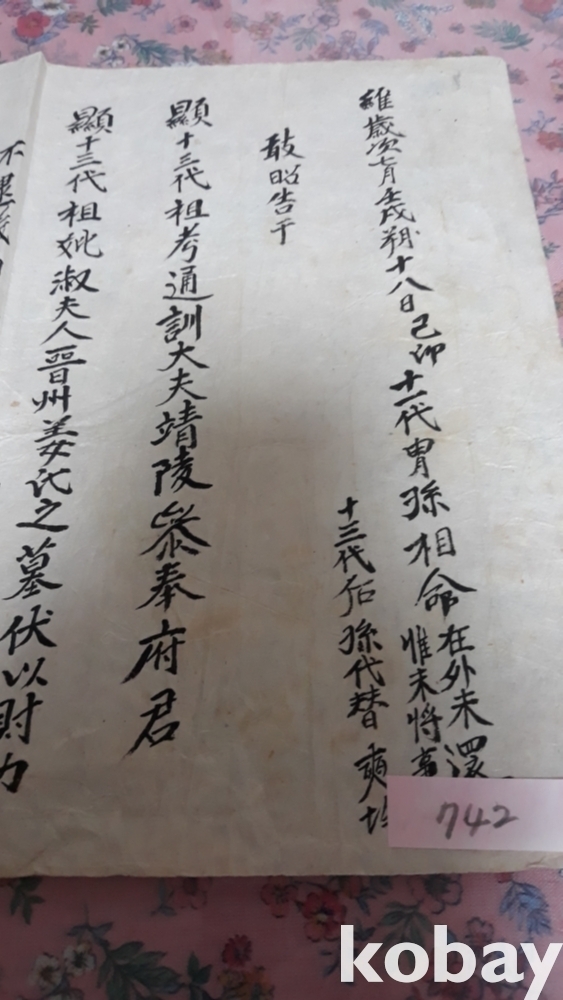 維歲次七月壬戌朔十八日己卯十一代冑孫相命在外未還
惟未將事
十三代后孫代替 奭
敢昭告于
顯十三代祖考通訓大夫靖陵叅奉府君
顯十三代祖妣淑夫人晉州姜氏之墓伏以財力
不
742
kobay